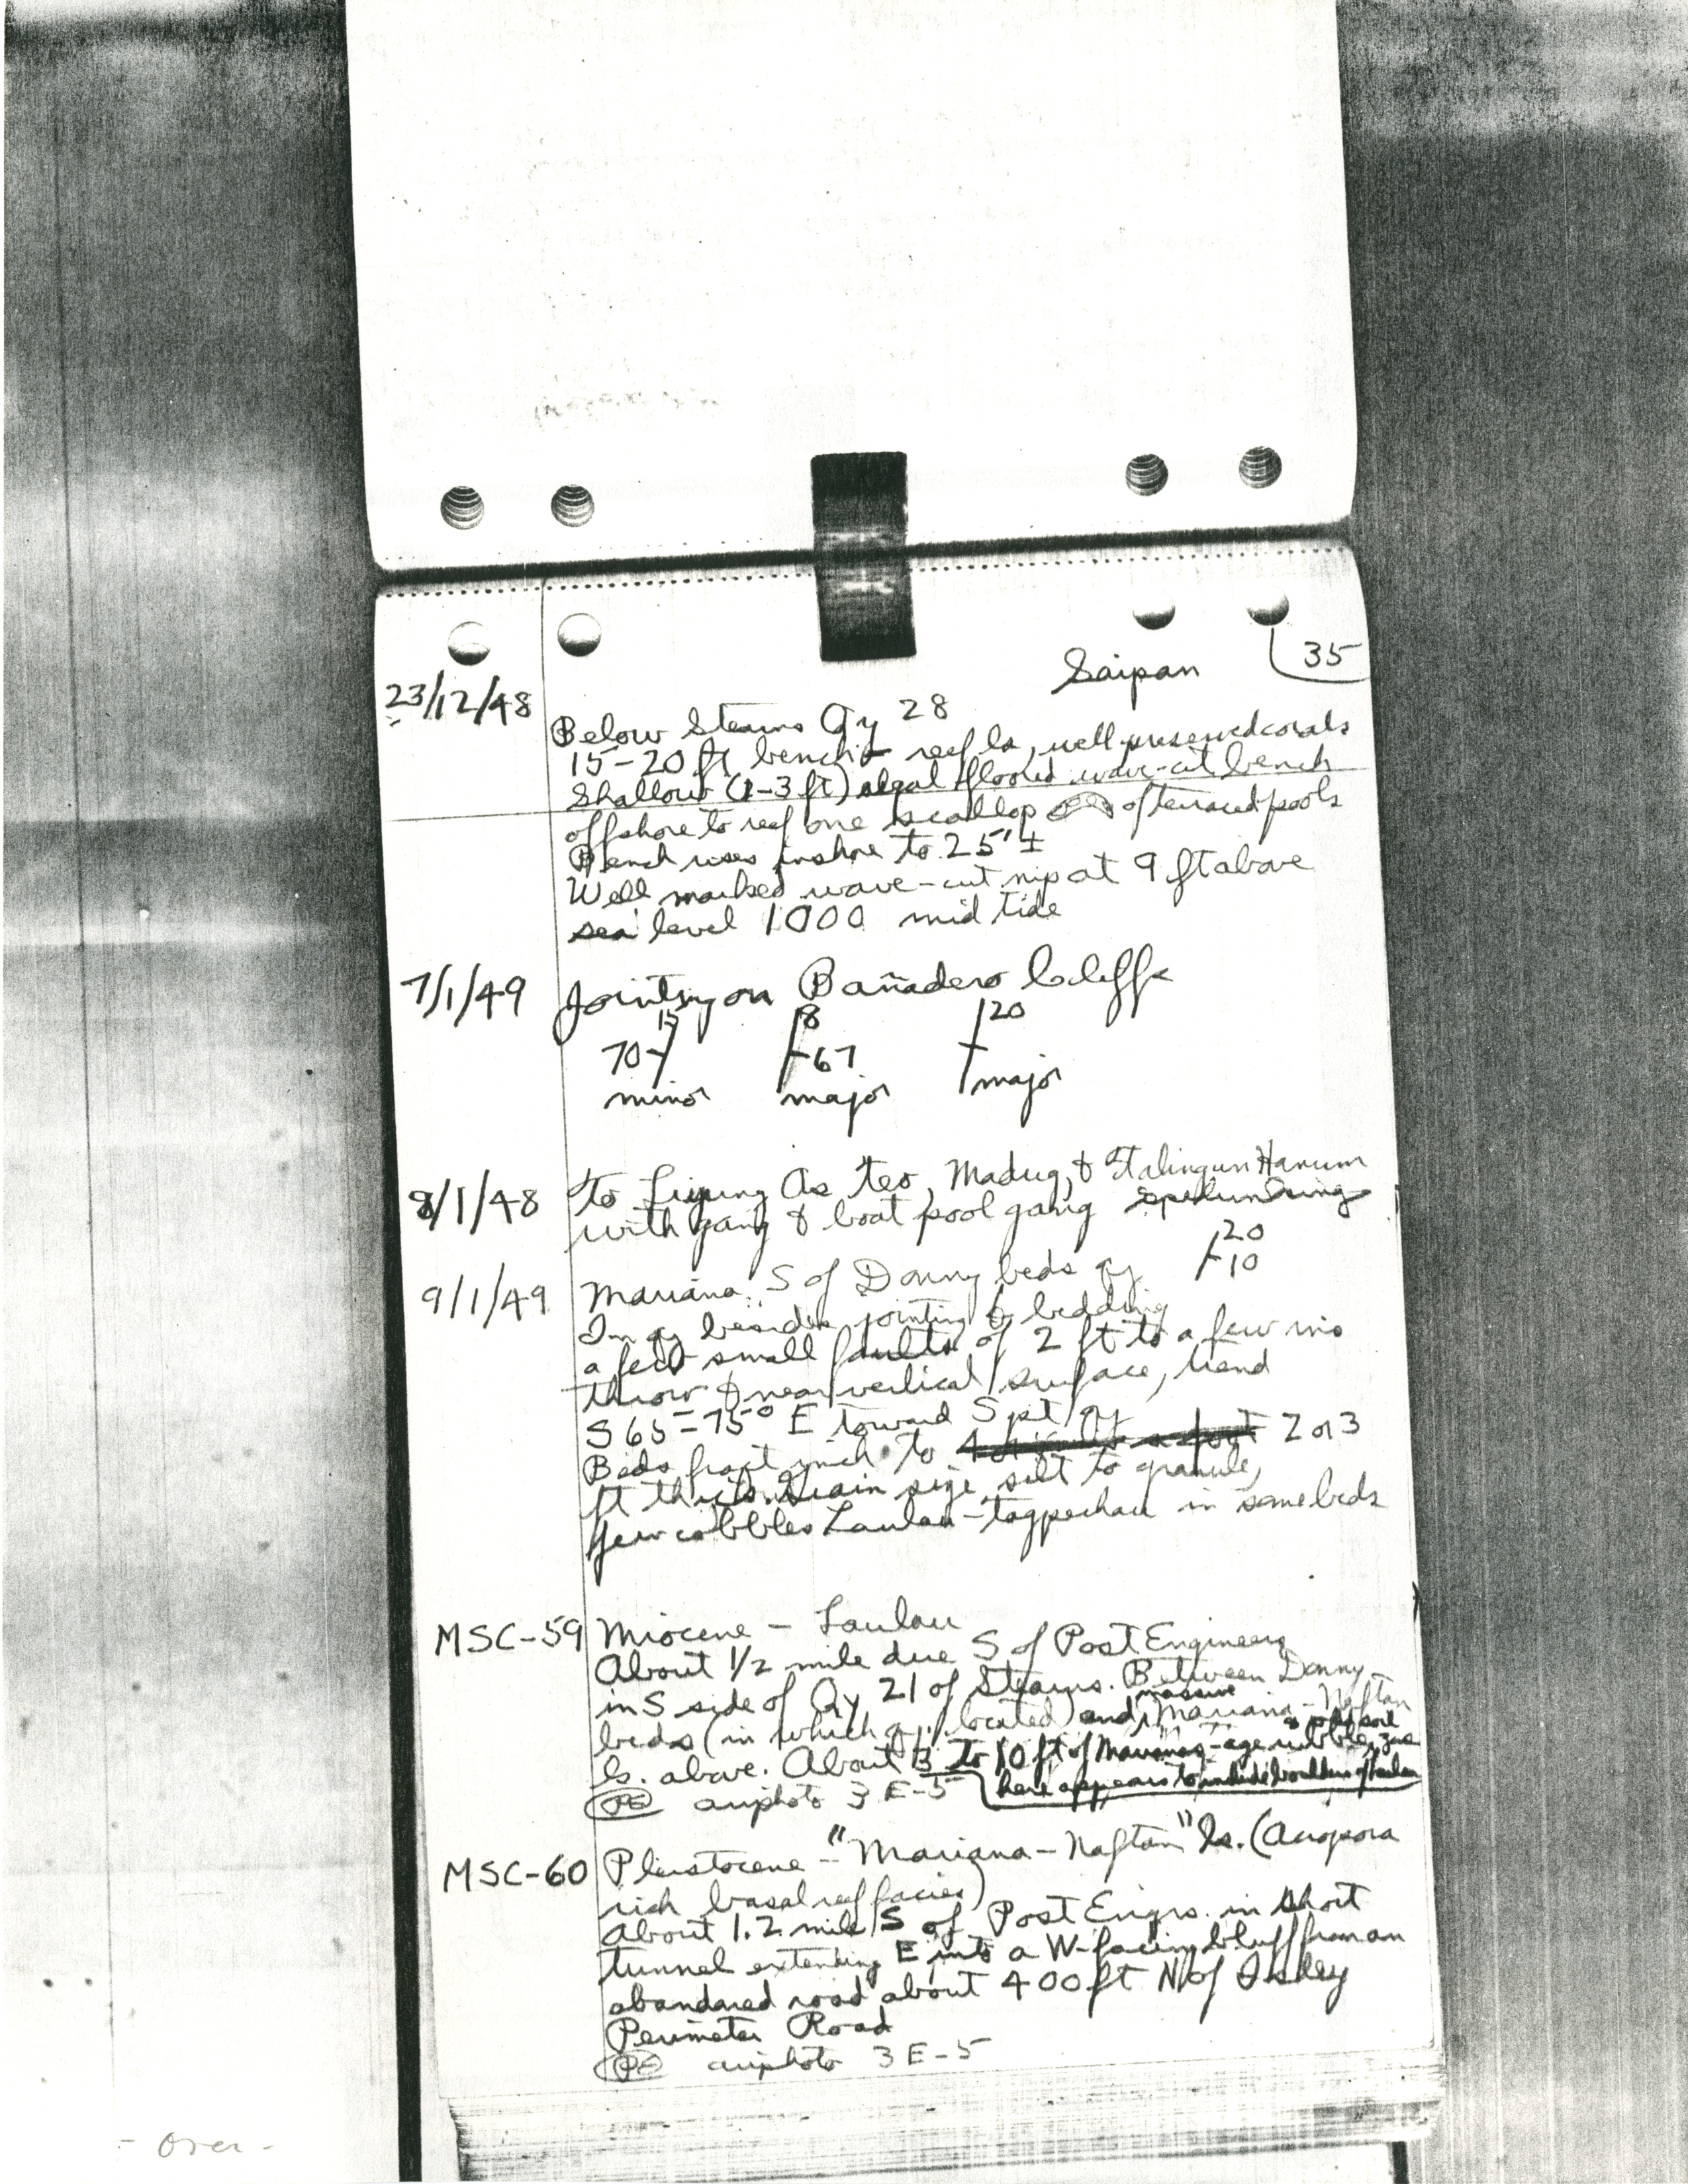 Saipan
35
23/12/48
Below Stearns Qy 28
15-20 ft bench - reef ls, well preserved corals
Shallow (1-3 ft) algal floored wave-cut bench
offshore to reef one scallop of terraced pools
Bench rises inshore to 25' ±
Well marked wave-cut nip at 9 ft above
sea level 1000 mid tide
7/1/49
Jointing on Bañadero Cliffs
15 18 20
70 67
minor major major
8/1/48
To As Teo, Madug, & Talingun Hanum
with gang & boat pool gang spelunking
9/1/49
Mariana S of Donny beds qy 20
10
In qy besides jointing & bedding
a few small faults of 2 ft to a few ins
throw & near vertical surface, trend
S 65-75° E toward S pt qy
Beds fract inch to 2 or 3
ft thick. Grain size silt to granule,
few cobbles Laulau-tagpochau in some beds
MSC-59
Miocene - Laulau
About 1/2 mile due S of Post Engineers
in S side of Qy 21 of Stearns. Between Donny
beds (in which qy located) and massive Mariana-Naftan
ls. above. About 3 to 10 ft of Mariana-age rubble & old soil zone
here appears to include boulders of Laulau
PE airphoto 3E-5
MSC-60
Pleistocene - "Mariana-Naftan" ls. (Acropora
rich basal reef facies)
About 1.2 mile S of Post Engrs. in short
tunnel extending E into a W-facing bluff from an
abandoned road about 400 ft N of Isley
Perimeter Road
PE airphoto 3E-5
- Over -